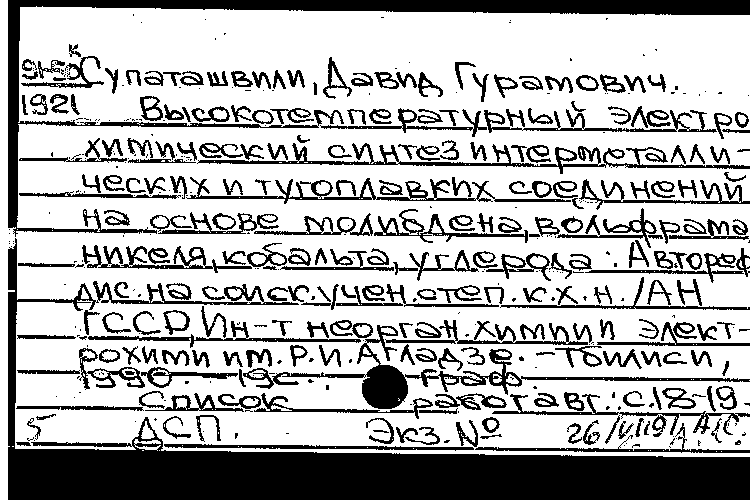 91-50 к Супаташвили, Давид Гурамович.
1921 Высокотемпературный электро
химический синтез интерметалли-
ческих и тугоплавких соединений
на основе молибдена, вольфрама
никеля, кобальта, углерода : Автореф
дис. на соиск. учен. степ. к.х.н. /АН
ГССР, Ин-т неорган. химии и элект-
рохимии им. Р.И. Агладзе. - Тбилиси,
1990. - 19с. : граф.
Список работ авт.: с.18-19.
5 ДСП. Экз. №